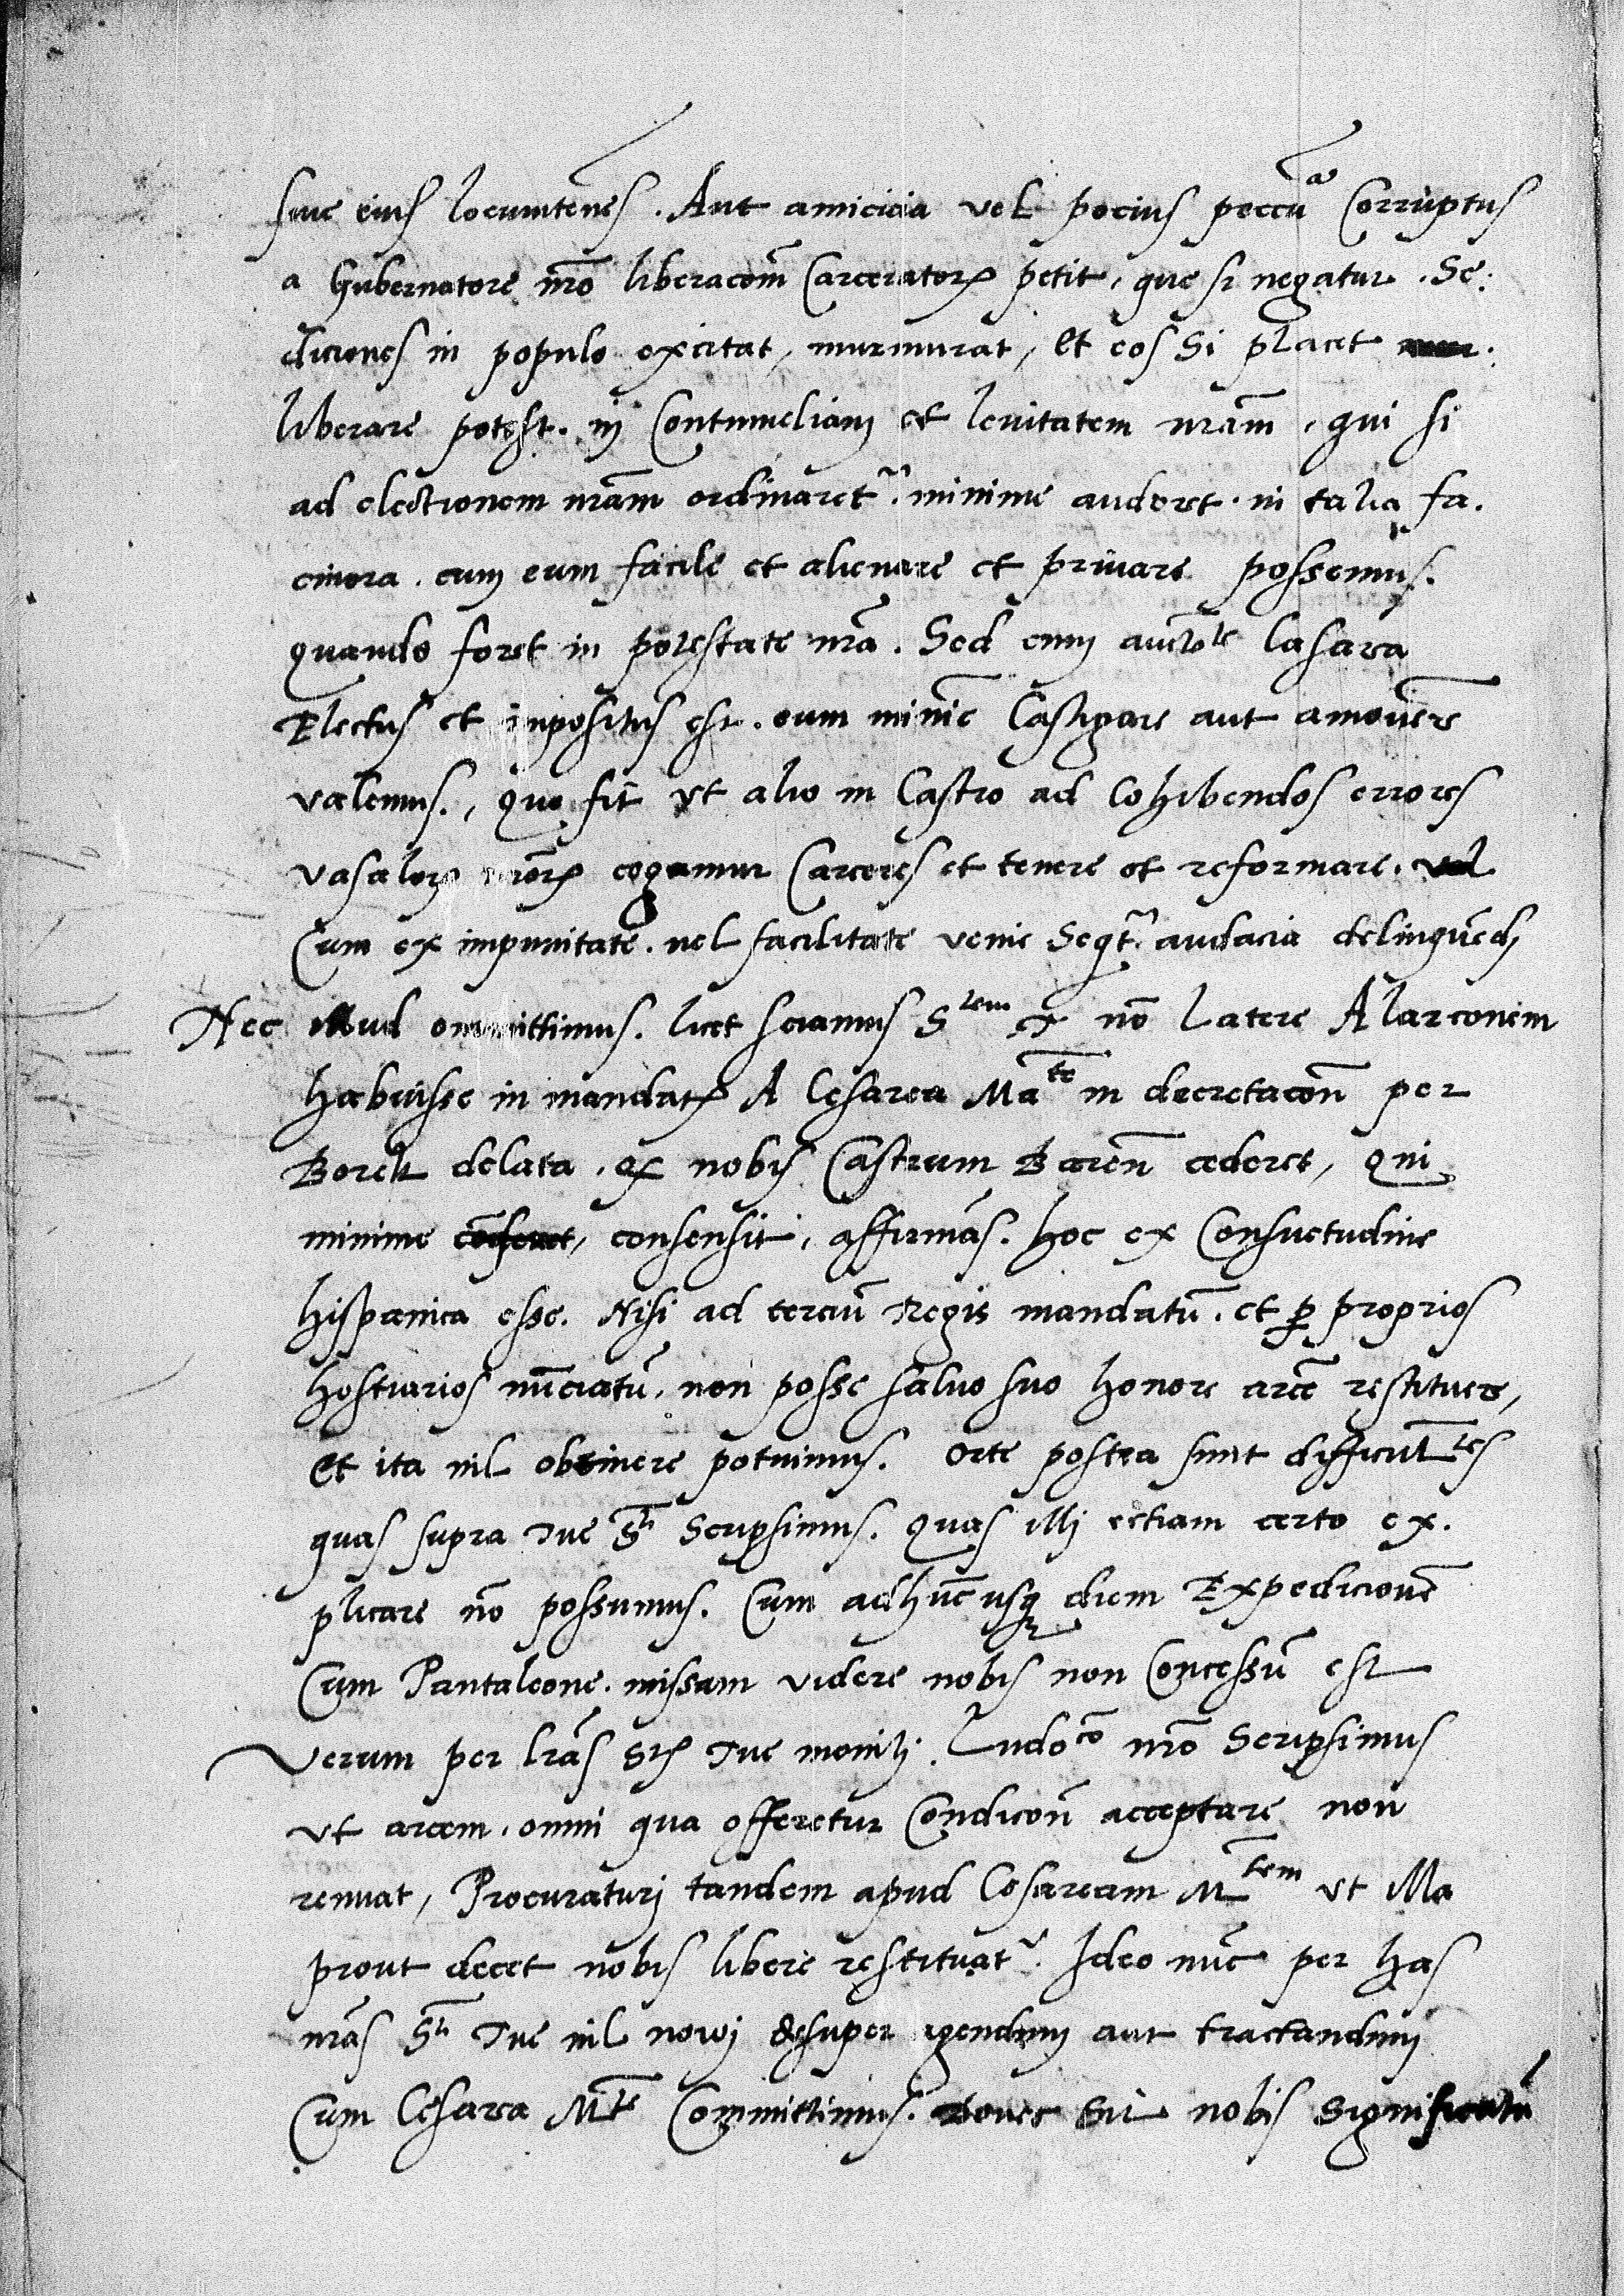 siue eius locumtenens. Aut amicicia vel pocius peccu͞a Corruptus
a Gubernatore nr̃o liberacom̃ Carceratorꝝ petit, que si negatur. Se:
diciones in populo excitat, murmurat, Et eos si placet
liberare potest. in Contumeliam et leuitatem nr̃am, qui si
ad electionem nr̃am ordinaret᷑. minime auderet. in talia fa.
cinora. cum eum facile et alienare et priuare possemus.
quando foret in potestate nr̃a. Sed cum auctõte Cesarea
Electus et impositus est. eum minĩe Castigare aut amouere
valemus., quo fit vt alio in Castro ad Cohibendos errores
vasalorꝝ nr̃orꝝ cogamur Carceres et tenere et reformare.
Cum ex impunitate. uel facilitate venie Seqt᷑. audacia delinquẽdi
Nec illud ommittimus. licet sciamus Stem T non latere Alarconem
habuisse in mandatꝭ A Cesarea Mate in decretacoñ per
Borek delata. ꝙ nobis Castrum Bareñ cederet, Qui
minime consensit, affirmãs. hoc ex Consuetudine
hispanica esse. Nisi ad terciũ Regis mandatũ. et ꝑ proprios
hostiarios nũciatũ. non posse saluo suo honore arcẽ restituere,
Et ita nil obtinere potuimus. Orte postea sunt difficultes
quas supra Tue Sti Scripsimus. Quas illi ectiam certo ex.
plicare nõ possumus. Cum adhuc usqꝫ diem Expedicionẽ
Cum Pantaleone. missam videre nobis non Concessũ est
Verum per lr̃as Stis Tue moniti. Ludoco nr̃o Scripsimus
vt arcem. omni qua offeretur Condicoñ acceptare non
renuat, Procuraturi tandem apud Cesaream Mtem vt Ma
prout decet nobis libere restituat᷑. Ideo nũc per has
nr̃as Sti Tue nil nowi desuper agendum aut tractandum
Cum Cesarea Mte Committimus. Donec Sit nobis significatũ